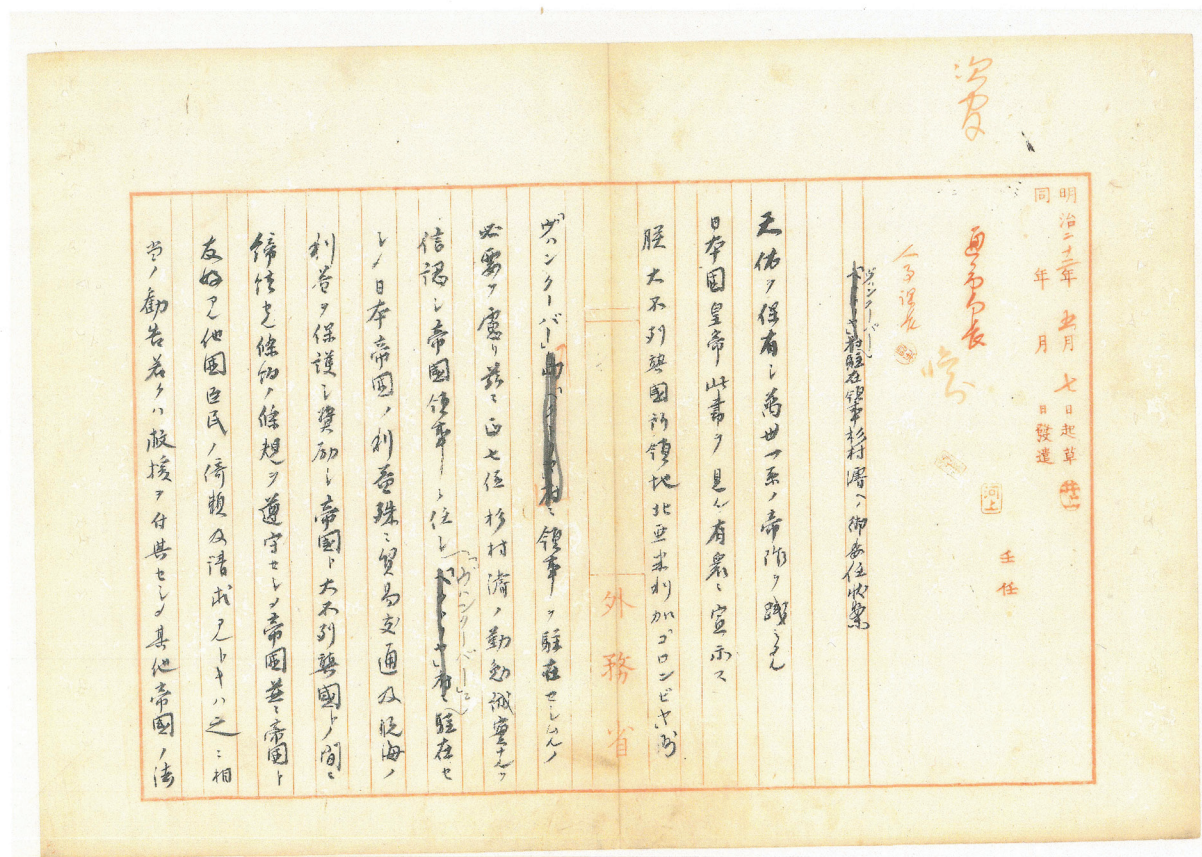 明治二十二年 五月 七日起草
同 年 月 日發遣
主任
河上
通商局長
人事課長
「ヴァンクーバー」駐在領事杉村濬ヘ御委任状案
天佑ヲ保有シ萬世一系ノ帝祚ヲ践ミタル
日本國皇帝此書ヲ見ル有衆ニ宣示ス
朕大不列顛國所領地北亜米利加コロンビヤ州
「ヴハンクーバー」ニ領事ヲ駐在セシムルノ
必要ヲ慮リ茲ニ正七位杉村濬ノ勤勉誠實ナルヲ
信認シ帝國領事ニ任シ「ヴハンクーバー」ニ駐在セ
シメ日本帝國ノ利益殊ニ貿易交通及航海ノ
利益ヲ保護シ奨励シ帝國ト大不列顛國トノ間ニ
締結セル條約ノ條規ヲ遵守セシメ帝國並ニ帝國ト
友好ナル他國臣民ノ倚頼及請求アルトキハ之ニ相
当ノ勧告若クハ救援ヲ付與セシメ其他帝國ノ法
外務省